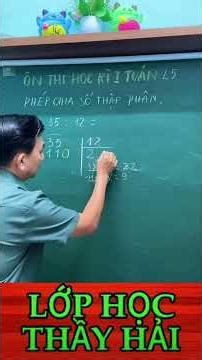 ÔN THI HỌC KÌ I TOÁN L5
PHÉP CHIA SỐ THẬP PHÂN.
35 : 12 =
35 12
110 2
LỚP HỌC
THẦY HẢI